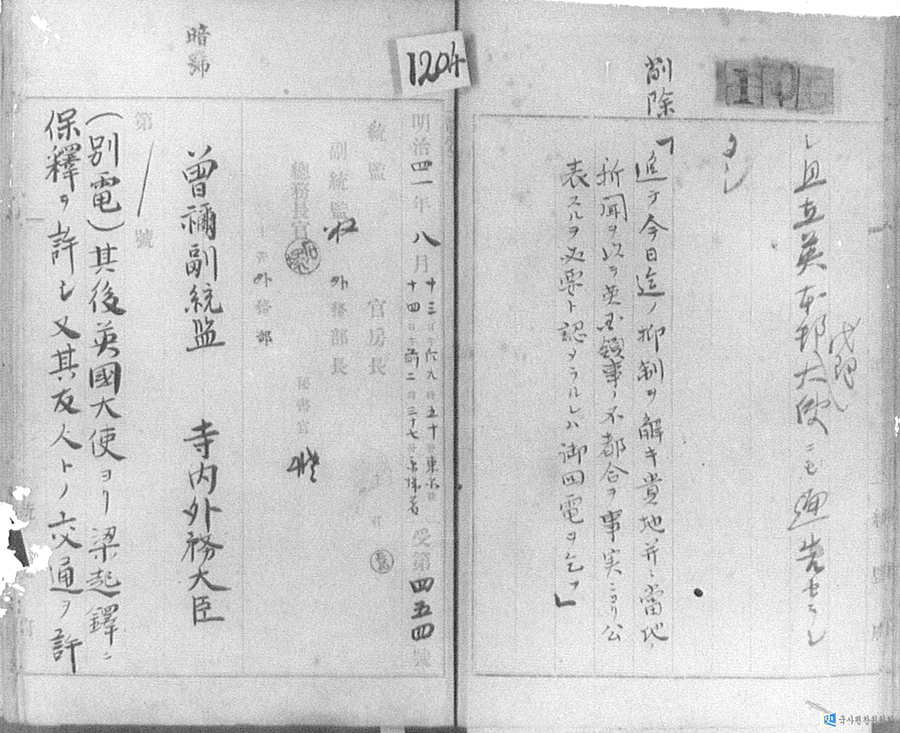 シ且在英本邦大使ニモ通告セラレ
タシ
削除
「追テ今日迄ノ抑制ヲ解キ貴地并ニ當地ノ
新聞ヲ以テ英国領事ノ不都合ヲ事実ニヨリ公
表スルヲ必要ト認メラルレハ御回電ヲ乞フ」
1204
暗號
明治四一年八月
受第四五四號
統監
官房長
副統監
外務部長
總務長官
秘書官
外務部
曾禰副統監 寺内外務大臣
第 號
(別電)其後英國大使ヨリ梁起鐸ニ
保釋ヲ許シ又其友人トノ交通ヲ許
국사편찬위원회